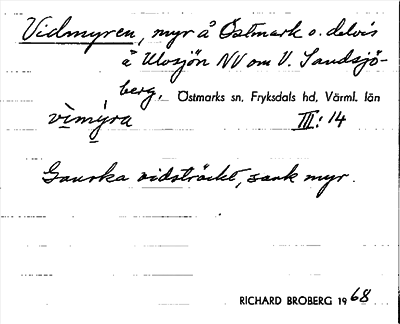 Vidmyren, myr å Östmark o. delvis
å Ulvsjön NV om V. Sandsjö-
berg, Östmarks sn, Fryksdals hd, Värml. län
vìmýra III: 14
Ganska vidsträckt, sank myr.
RICHARD BROBERG 1968